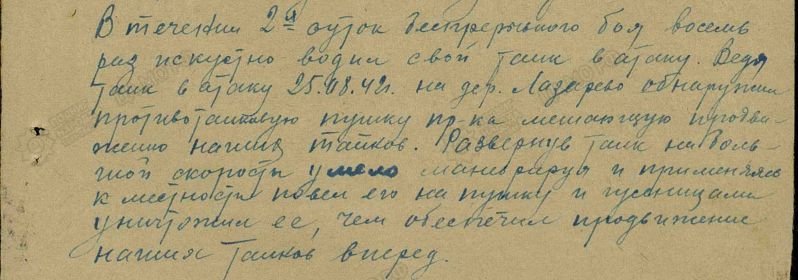 В течении 2х суток беспрерывного боя восемь
раз искустно водил свой танк в атаку. Ведя
танк в атаку 25.08.42г. на дер. Лазарево обнаружил
противотанковую пушку пр-ка мешающую продви-
жению наших танков. Развернув танк на боль-
шой скорости умело маневрируя и применяясь
к местности повел его на пушку и гусеницами
уничтожил ее, чем обеспечил продвижение
наших танков вперед.